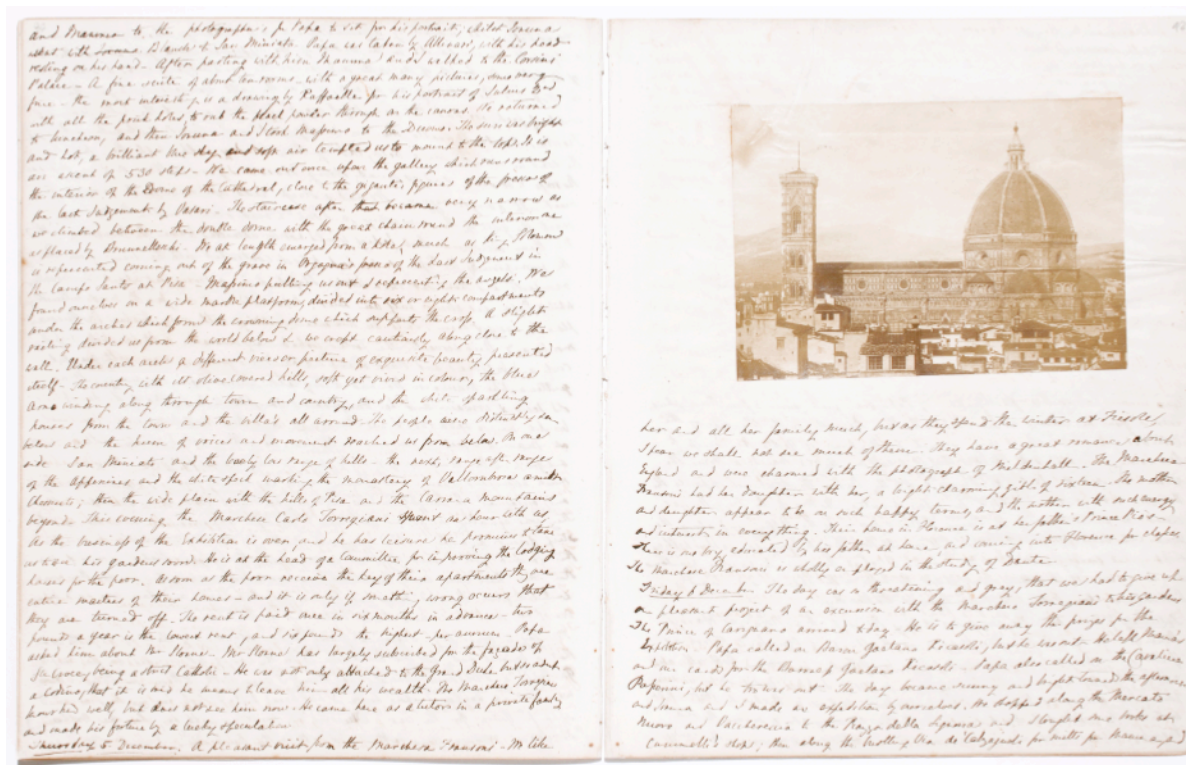 and Mamma to the photographers for Papa to sit for his portrait, whilst Joanna
went with Blanche to San Miniato. Papa was taken by Allinari, with his head
resting on his hand. After parting with him Mamma and I walked to the Corsini
Palace - A fine suite of about ten rooms - with a great many pictures, some very
fine - the most interesting is a drawing by Raffaelle for his portrait of Julius 2nd
with all the prick holes to rub the black powder through on the canvas. We returned
to luncheon, and then Joanna and I took Maximo to the Duomo. The sun was bright
and hot, a brilliant blue sky and soft air tempted us to mount to the top. It is
an ascent of 530 steps - We came out once upon the gallery which runs round
the interior of the Dome of the Cathedral, close to the gigantic figures of the frescoes of
the last Judgement by Vasari. The staircase after that became very narrow as
we climbed between the double dome with the great chain round the interior one
as placed by Brunelleschi. We at length emerged from a hole, much as King Solomon
is represented coming out of the grave in Orgagna's fresco of the Last Judgment in
the Campo Santo at Pisa - Maximo pulling us out representing the angels. We
found ourselves on a wide marble platform, divided into six or eight compartments
under the arches which form the crowning dome which supports the cross. A slight
railing divided us from the world below & we crept cautiously along close to the
wall. Under each arch a different view or picture of exquisite beauty presented
itself - The country with its olive covered hills, soft yet vivid in colour, the blue
Arno winding along through town and country, and the white sparkling
houses from the town and the villa's all around. The people were distinctly seen
below and the hum of voices and movement reached us from below. On one
side San Miniato and the lovely low range of hills - the next, range after range
of the Appenines and the white spot marking the monastery of Vallombrosa amidst
Chesnuts; then the wide plain with the hills of Pisa and the Carrara mountains
beyond. This evening the Marchese Carlo Torregiani spent an hour with us,
As the business of the Exhibition is over, and he has leisure he promises to take
us to see his gardens soon. He is at the head of a Committee for improving the lodging
houses for the poor. As soon as the poor receive the key of their apartments they are
entire masters of their houses - and it is only if something wrong occurs that
they are turned off. The rent is paid once in six months in advance - two
pounds a year is the lowest rent, and six pounds the highest per annum. Papa
asked him about Mr Sloane. Mr Sloane has largely subscribed for the façade of
Sta Croce, being a strict Catholic. He was not only attached to the Grand Duke, but so ardent
a Codino, that it is said he means to leave him all his wealth. The Marchese Torregiani
knew him well, but does not see him now. He came here as a tutor in a private family
and made his fortune by a lucky speculation.
Thursday 5 December. A pleasant visit from the Marchesa Fransoni. We like
her and all her family much, but as they spend the winter at Fiesole,
I fear we shall not see much of them. They have a great romance about
England and were charmed with the photograph of Mildenhall. The Marchesa
Fransoni had her daughter with her, a bright charming girl of sixteen. The mother
and daughter appear to be on such happy terms, and the mother with such energy
and interest in everything. Their home in Florence is at her father's Prince Pio's -
There is one boy educated by his father at home, and coming into Florence for classes
The Marchese Fransoni is wholly employed in the study of Dante.
Friday 6 December. The day was so threatening and grey, that we had to give up
a pleasant project of an excursion with the Marchese Torregiani to his gardens
The Prince of Carignano arrived today. He is to give away the prizes for the
Exhibition. Papa called on Baron Gaetano Ricasoli, but he was out. He left Mama's
and his cards for the Baroness Gaetano Ricasoli. Papa also called on the Cavaliere
Passerini, but he too was out. The day became sunny and bright towards the afternoon
and Joanna and I made an expedition by ourselves. We shopped along the Mercato
Nuovo and Vacchereccia to the Piazza della Signoria and bought some books at
shop; then along the bustling Via de' Calzajuoli for for Mamma and